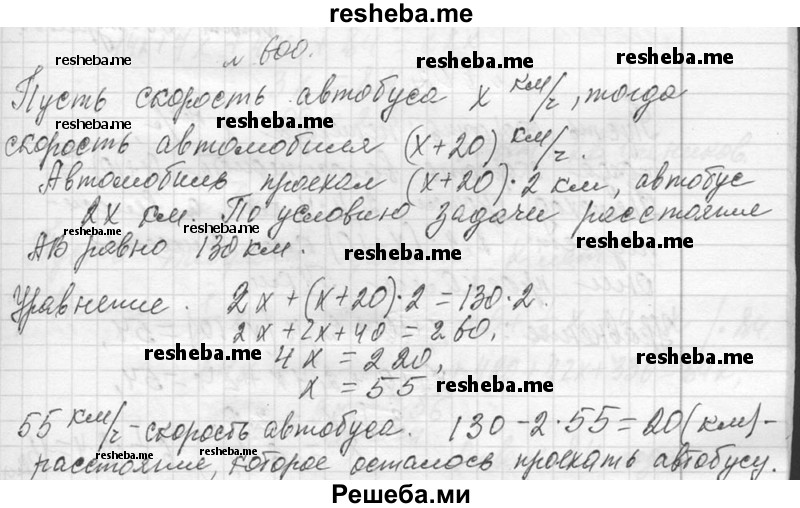 resheba.me
№ 600.
Пусть скорость автобуса x км/ч, тогда
скорость автомобиля (x+20) км/ч.
Автомобиль проехал (x+20)·2 км, автобус
2x км. По условию задачи расстояние
АВ равно 130 км.
Уравнение. 2x+(x+20)·2=130·2.
2x+2x+40=260,
4x=220,
x=55
55 км/ч - скорость автобуса. 130-2·55=20(км)-
расстояние, которое осталось проехать автобусу.
resheba.me
resheba.me
resheba.me
resheba.me
resheba.me
resheba.me
resheba.me
resheba.me
resheba.me
resheba.me
resheba.me
resheba.me
Решеба.ми